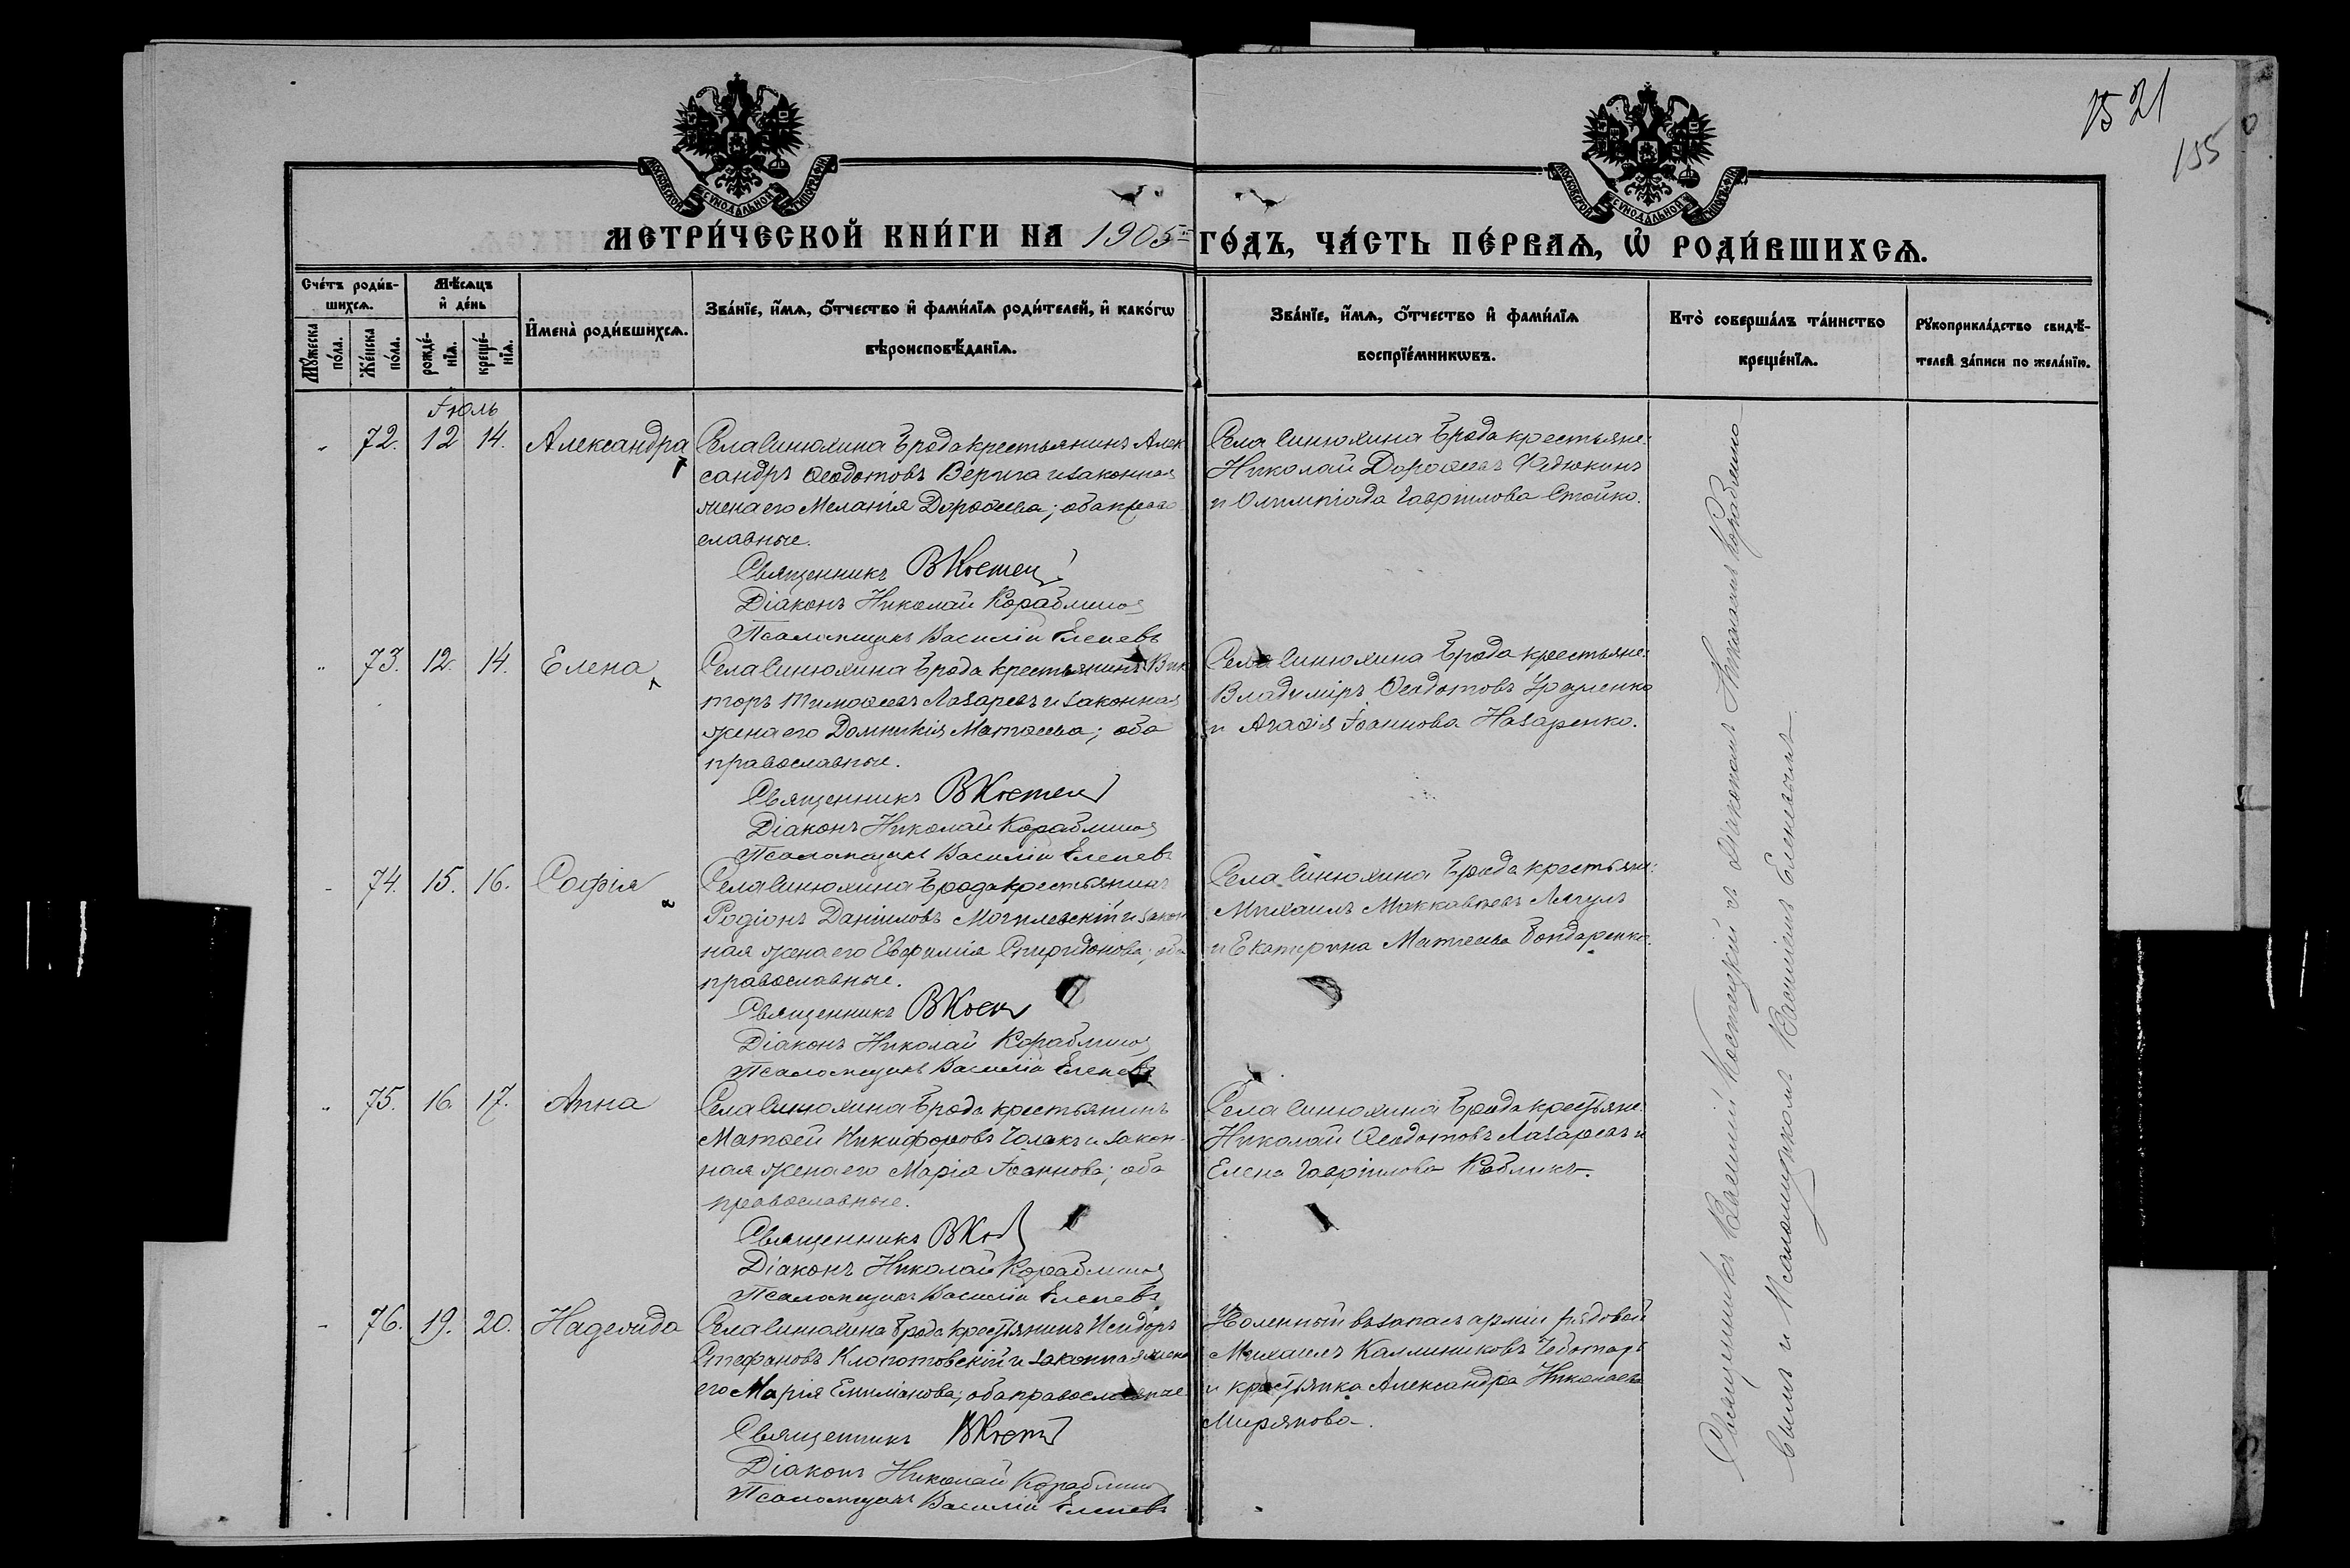 15 21
155
МОСКОВСКОЙ СѴНОДАЛЬНОЙ ТИПОГРАФІИ
МОСКОВСКОЙ СѴНОДАЛЬНОЙ ТИПОГРАФІИ
МЕТРИ́ЧЕСКОЙ КНИ́ГИ НА 1905 ГО́ДЪ, ЧА́СТЬ ПЕ́РВАѦ, Ѡ҆ РОДИ́ВШИХСѦ.
Сче́тъ роди́в-
шихсѧ.
Мꙋ́жеска по́ла.
Же́нска по́ла.
Мѣ́сѧцъ
и҆ де́нь
рожде́-
нїѧ.
креще́-
нїѧ.
И҆мена̀ роди́вшихсѧ.
Зва́нїе, и҆́мѧ, ѻ҆́тчество и҆ фами́лїѧ роди́телей, и҆ како́гѡ
вѣроисповѣ́данїѧ.
Зва́нїе, и҆́мѧ, ѻ҆́тчество и҆ фами́лїѧ
воспрїе́мникѡвъ.
Кто̀ соверша́лъ та́инство
креще́нїѧ.
Рꙋкоприкла́дство свидѣ́-
телей за́писи по жела́нїю.
Іюль
72. 12 14. Александра
Села Синюхина Брода крестьянинъ Алек
сандръ Ѳеодотовъ Верига и законная
жена его Меланія Дороѳеева; оба право
славные.
Священникъ В Костец
Діаконъ Николай Кораблинов
Псаломщикъ Василій Елепевъ
Села Синюхина Брода крестьяне:
Николай Дороѳеевъ Федюкинъ
и Олимпіада Гавріилова Стойко.
73. 12. 14. Елена
Села Синюхина Брода крестьянинъ Вик
торъ Тимоѳеевъ Лазаревъ и законная
жена его Домникія Матѳеева; оба
православные.
Священникъ В Костец
Діаконъ Николай Кораблинов
Псаломщикъ Василій Елепевъ
Села Синюхина Брода крестьяне:
Владиміръ Ѳеодотовъ
и Агаѳія Іоаннова Назаренко.
74. 15. 16. Софія
Села Синюхина Брода крестьянинъ
Родіонъ Даніиловъ Могилевскій и закон
ная жена его Евфимія Спиридонова; оба
православные.
Священникъ В Косц
Діаконъ Николай Кораблинов
Псаломщикъ Василій Елепевъ
Села Синюхина Брода крестьяне:
Михаилъ Маккавеевъ Лягулъ
и Екатерина Матѳеева Бондаренко.
75. 16. 17. Анна
Села Синюхина Брода крестьянинъ
Матѳей Никифоровъ Чолакъ и закон-
ная жена его Марія Іоаннова; оба
православные.
Священникъ В Ко
Діаконъ Николай Кораблинов
Псаломщикъ Василій Елепевъ
Села Синюхина Брода крестьяне:
Николай Ѳеодотовъ Лазаревъ и
Елена Гавріилова Кобликъ.
76. 19. 20. Надежда
Села Синюхина Брода крестьянинъ Исидоръ
Стефановъ Клопотовскій и законная жена
его Марія Емиліанова; оба православные
Священникъ В Кост
Діаконъ Николай Кораблинов
Псаломщикъ Василій Елепевъ
Уволенный въ запасъ арміи рядовой
Михаилъ Каллиниковъ Чеботарь
и крестьянка Александра Николаева
Мирянова.
Священникъ Василий Костецкій съ Діакономъ Николаемъ Кораблино
вымъ и Псаломщикомъ Василіемъ Елепевымъ.